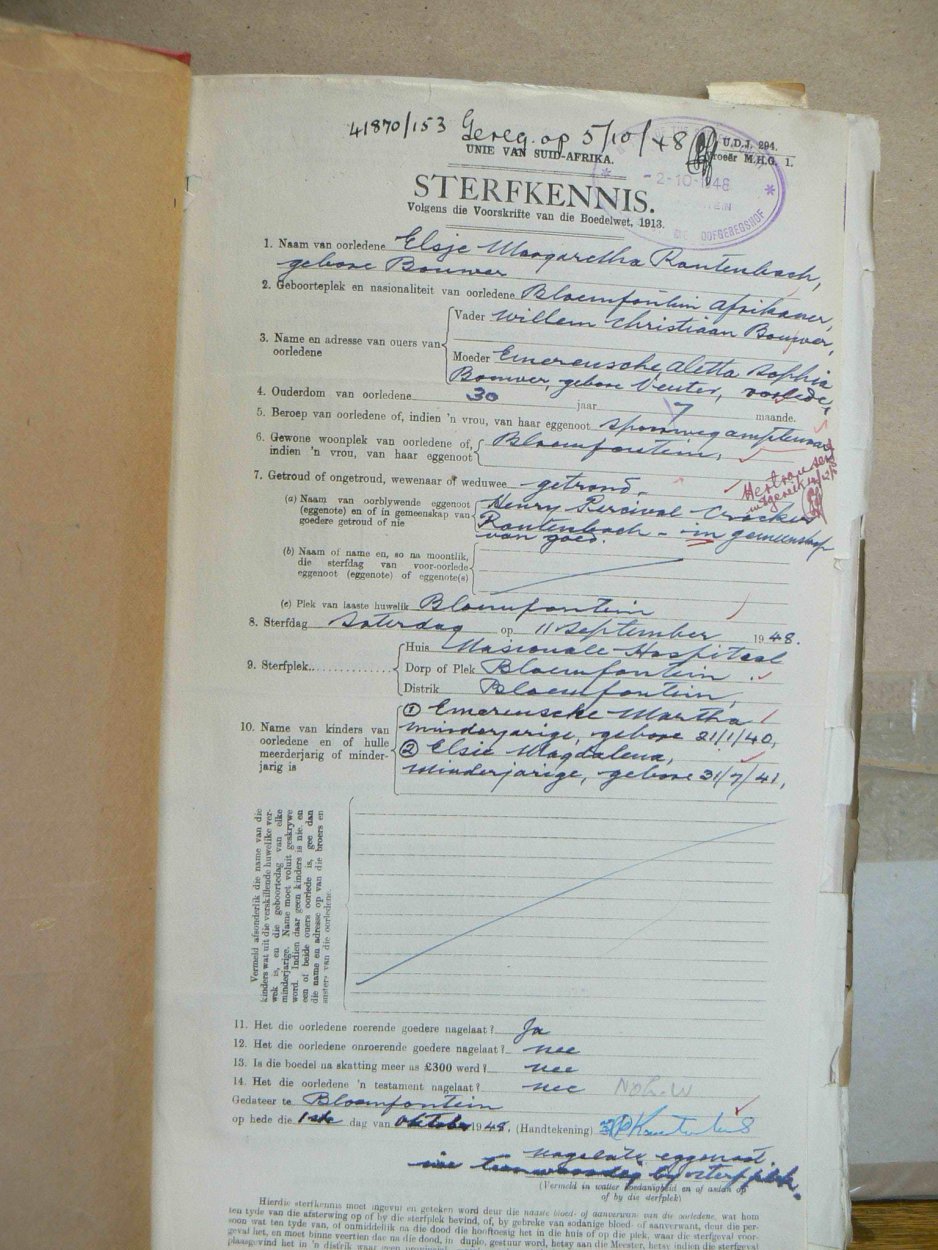 41870/153 Gereg. op 5/10/48
U.D.J. 294.
UNIE VAN SUID-AFRIKA.
(Vroeër M.H.G. 1.
-2-10-1948
STERFKENNIS.
Volgens die Voorskrifte van die Boedelwet, 1913.
HOOGGEREGSHOF
1. Naam van oorledene Elsje Margaretha Rautenbach,
gebore Bouwer
2. Geboorteplek en nasionaliteit van oorledene Bloemfontein Afrikaner,
3. Name en adresse van ouers van oorledene
Vader Willem Christiaan Bouwer,
Moeder Emerensche Aletta Sophia
Bouwer, gebore Venter, oorlede,
4. Ouderdom van oorledene 30 jaar 7 maande.
5. Beroep van oorledene of, indien 'n vrou, van haar eggenoot spoorwegamptenaar
6. Gewone woonplek van oorledene of,
indien 'n vrou, van haar eggenoot
Bloemfontein,
7. Getroud of ongetroud, wewenaar of weduwee getroud.
(a) Naam van oorblywende eggenoot
(eggenote) en of in gemeenskap van
goedere getroud of nie
Henry Percival Crocker
Rautenbach - in gemeenskap
van goed.
(b) Naam of name en, so na moontlik,
die sterfdag van voor-oorlede
eggenoot (eggenote) of eggenote(s)
(c) Plek van laaste huwelik Bloemfontein
8. Sterfdag Saterdag op 11 September 1948.
9. Sterfplek
Huis Nasionale Hospitaal
Dorp of Plek Bloemfontein
Distrik Bloemfontein,
10. Name van kinders van
oorledene en of hulle
meerderjarig of minder-
jarig is
① Emerensche Martha
minderjarige, gebore 21/1/40,
② Elsie Magdalena,
minderjarige, gebore 31/7/41,
Vermeld afsonderlik die name van die
kinders wat uit die verskillende huwelike ver-
wek is, en die geboortedag van elke
minderjarige. Name moet voluit geskrywe
word. Indien daar geen kinders is nie, en
een of beide ouers oorlede is, gee dan
die name en adresse op van die broers en
susters van die oorledene.
11. Het die oorledene roerende goedere nagelaat? Ja
12. Het die oorledene onroerende goedere nagelaat? nee
13. Is die boedel na skatting meer as £300 werd? nee
14. Het die oorledene 'n testament nagelaat? nee
Gedateer te Bloemfontein
op hede die 1ste dag van Oktober 1948. (Handtekening)
nagelate eggenoot.
(Vermeld in watter hoedanigheid en of aldan op
of by die sterfplek)
Hierdie sterfkennis moet ingevul en geteken word deur die naaste bloed- of aanverwant van die oorledene, wat hom
ten tyde van die afsterwing op of by die sterfplek bevind, of, by gebreke van sodanige bloed- of aanverwant, deur die per-
soon wat ten tyde van, of onmiddellik na die dood die hooftoesig het in die huis of op die plek, waar die sterfgeval voor-
geval het, en moet binne veertien dae na die dood, in duplo, gestuur word, hetsy aan die Meester, hetsy indien die sterfgeval